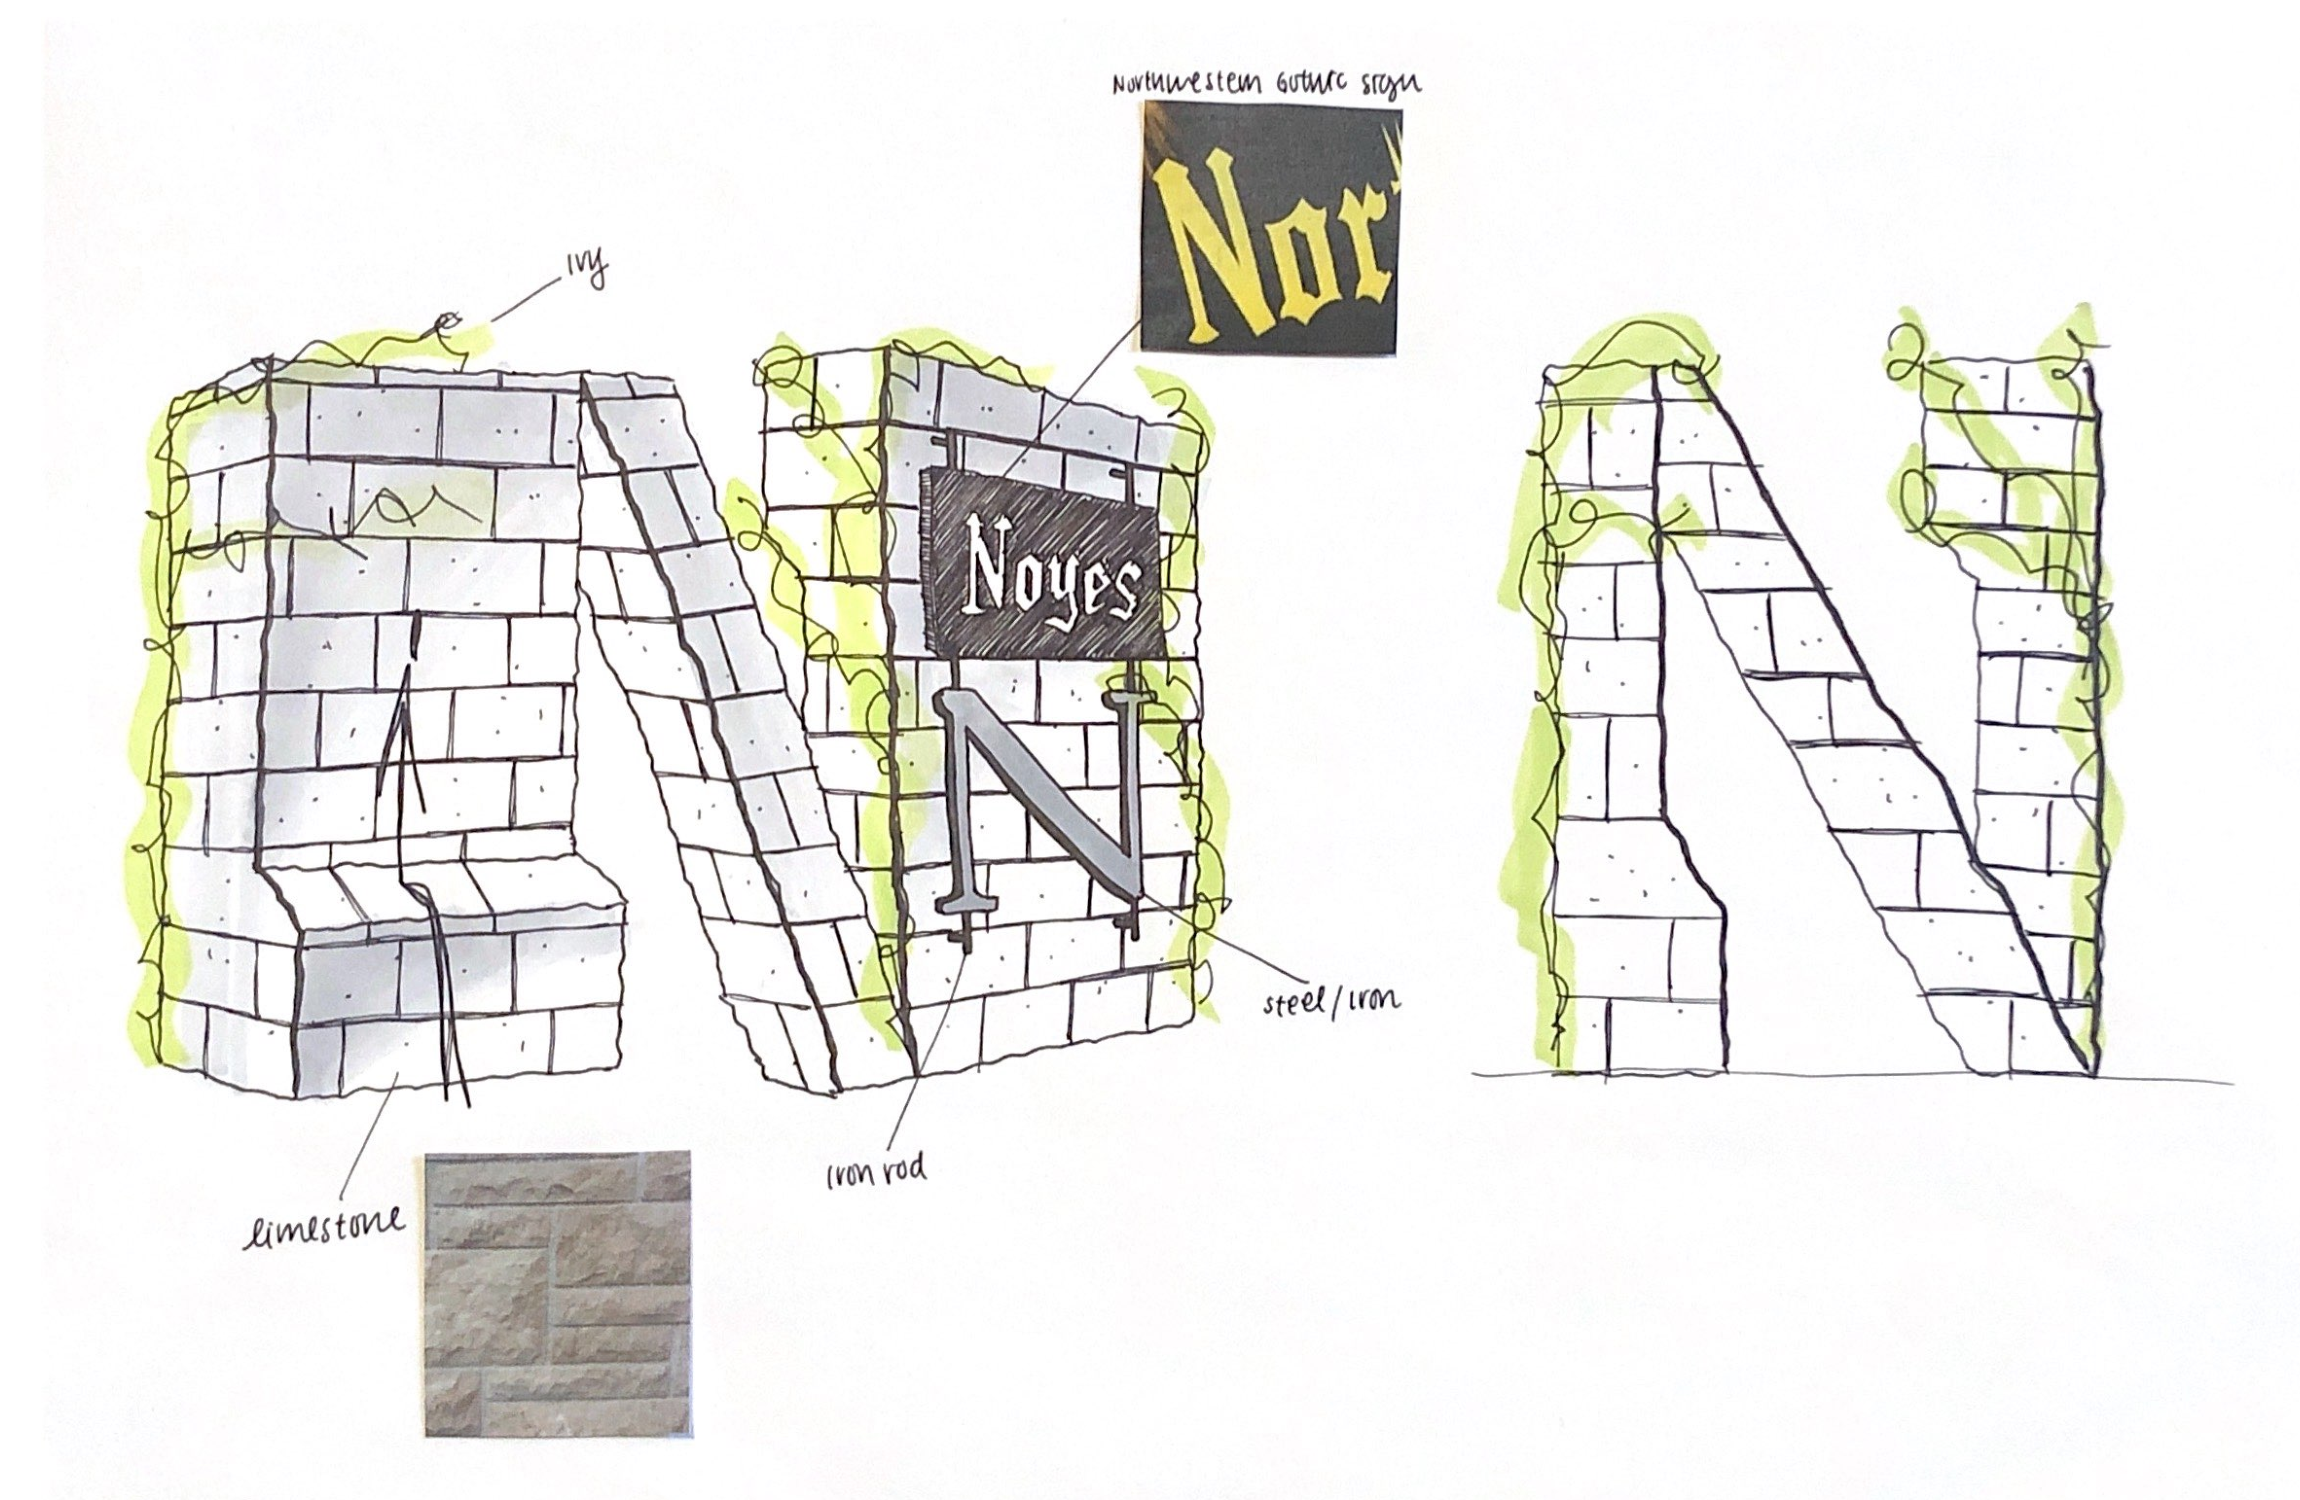 Northwestern Gothic sign
Nor
ivy
Noyes
N
steel/iron
iron rod
limestone